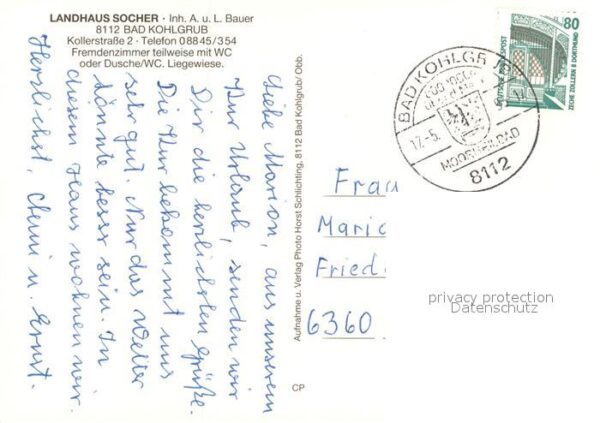 LANDHAUS SOCHER · Inh. A. u. L. Bauer
8112 BAD KOHLGRUB
Kollerstraße 2 · Telefon 08845/354
Fremdenzimmer teilweise mit WC
oder Dusche/WC. Liegewiese.
Liebe Marion, aus unserem
Kur Urlaub, senden wir
Dir die herzlichsten Grüße.
Die Kur bekommt uns
sehr gut. Nur das Wetter
könnte besser sein. In
diesem Haus wohnen wir.
Herzlichst,
u. Ernst.
Aufnahme u. Verlag Photo Horst Schlichting, 8112 Bad Kohlgrub/ Obb.
CP
BAD KOHLGRUB
17.-5.
MOORHEILBAD
8112
80
DEUTSCHE BUNDESPOST
ZECHE ZOLLERN II DORTMUND
Frau
Mario
Fried
6360
privacy protection
Datenschutz